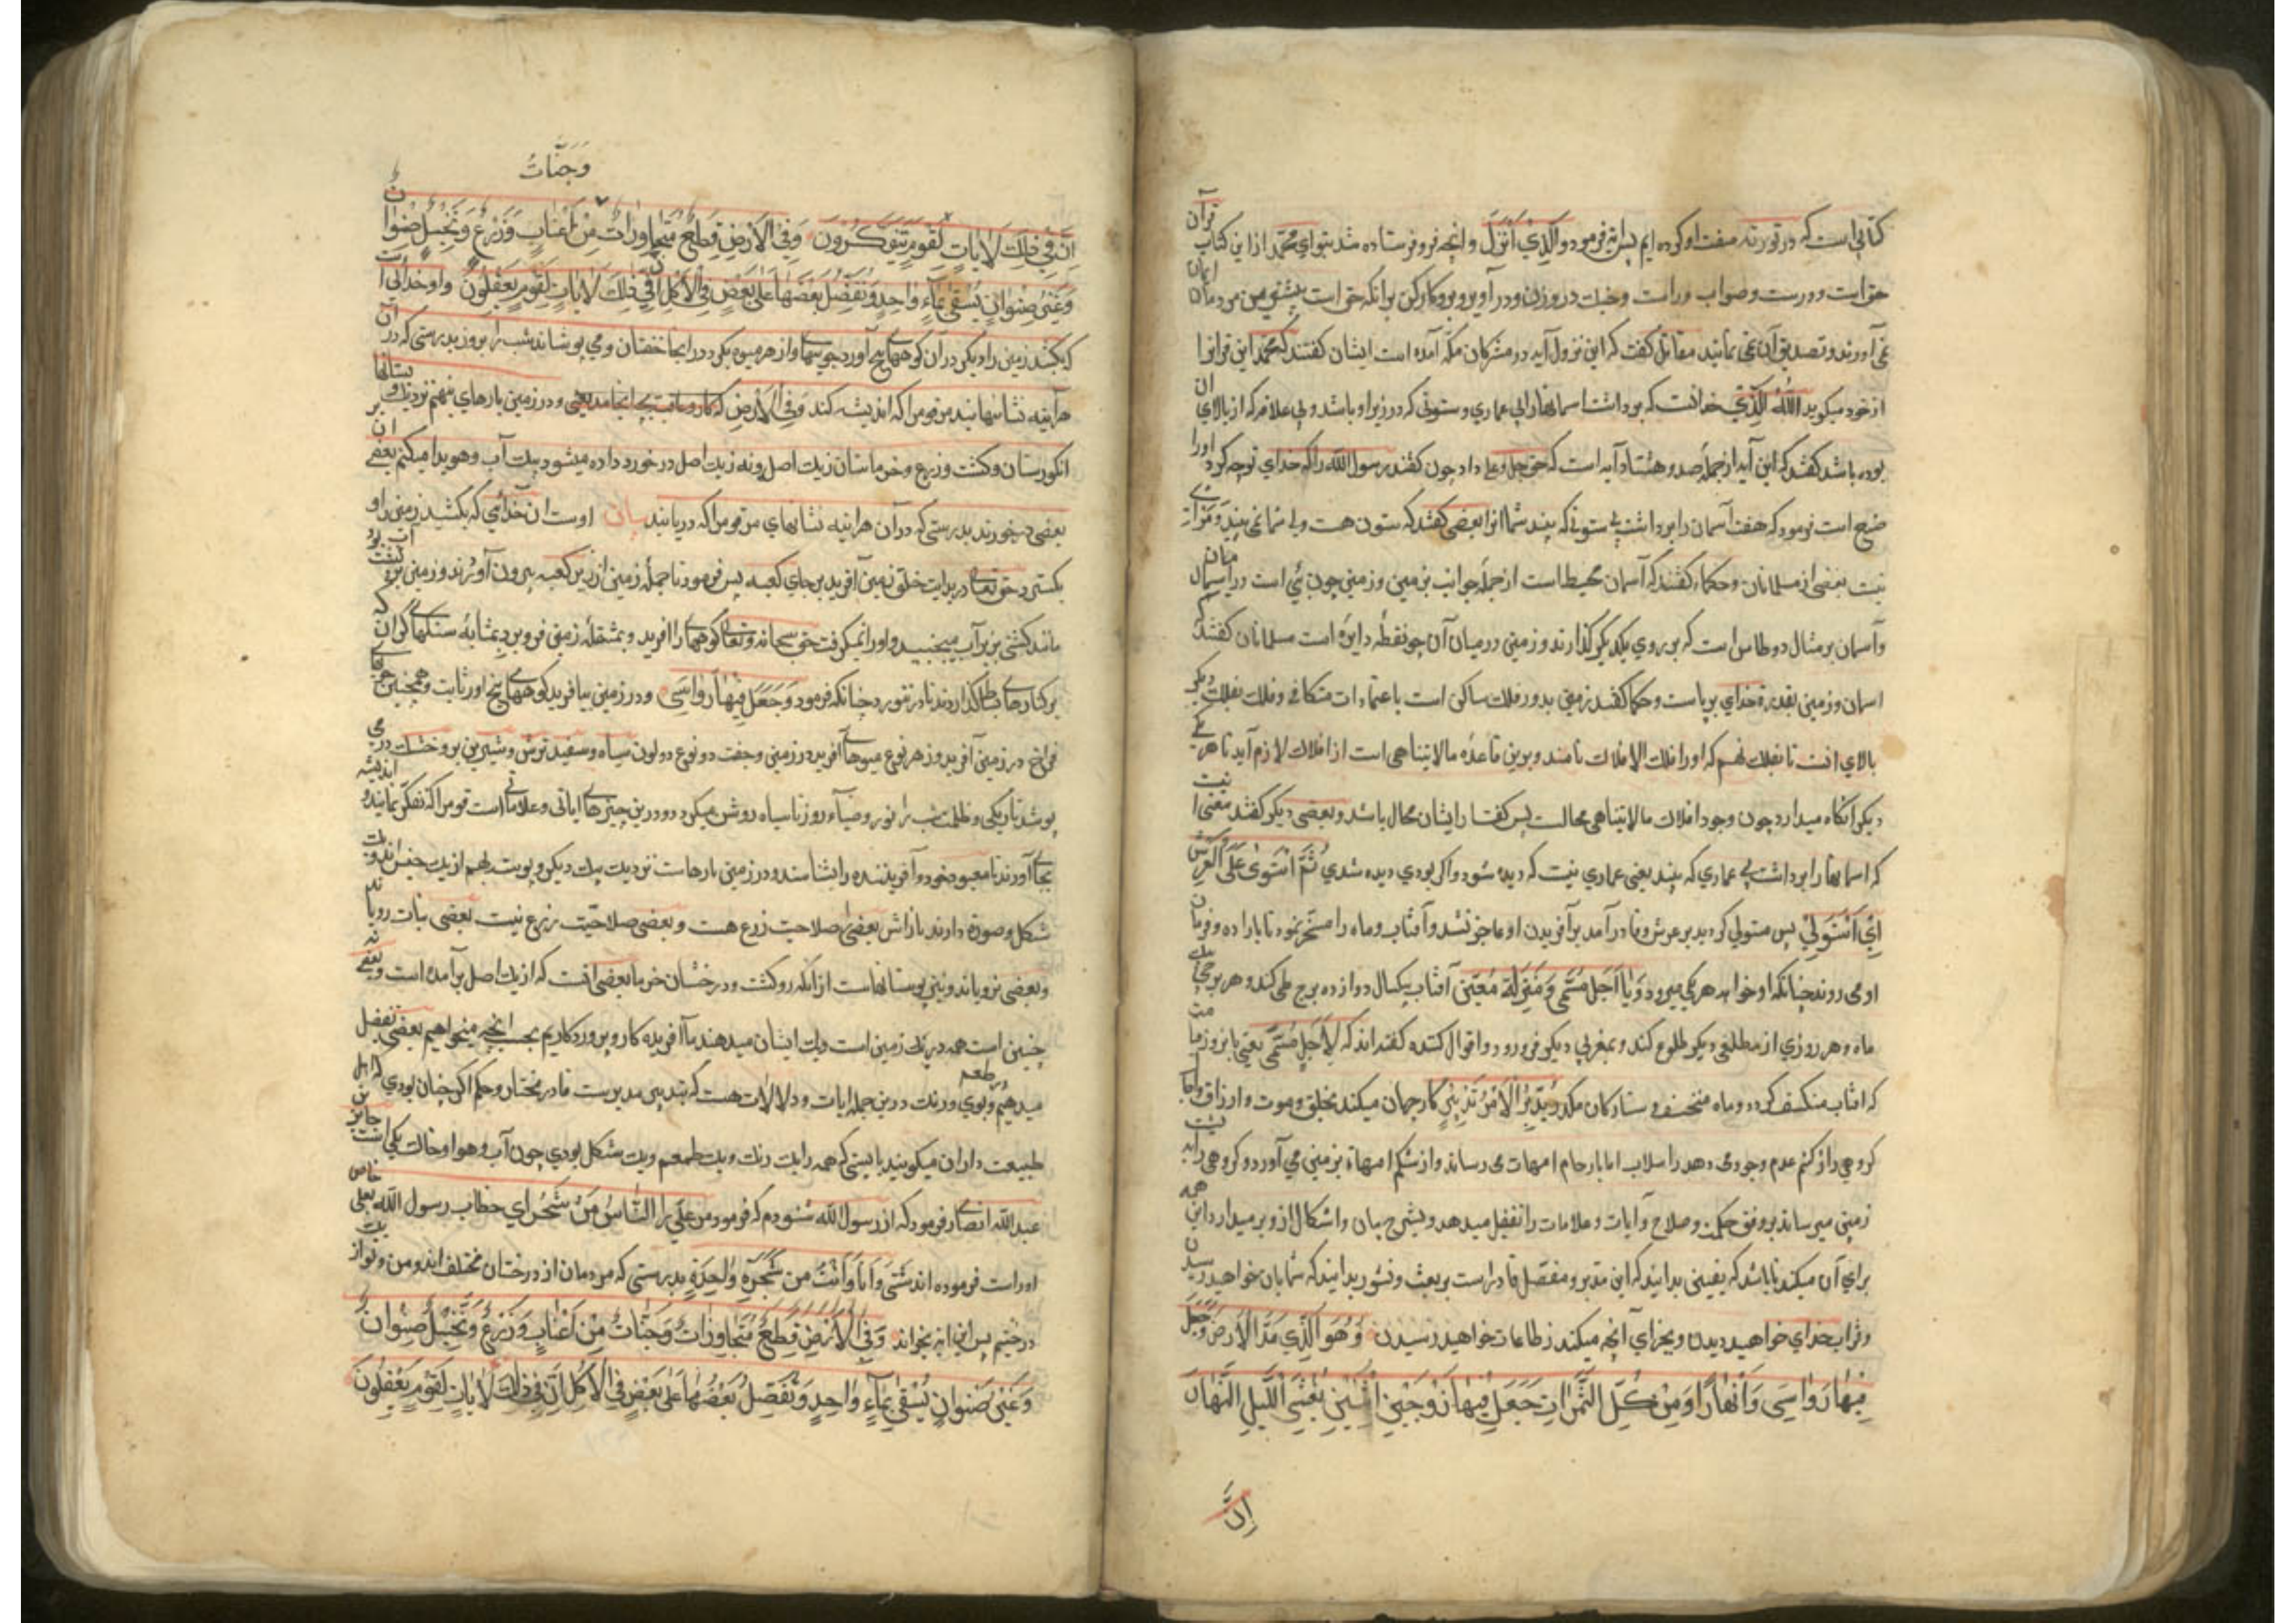 كتابی است كه در تورته صفت او كرده ایم پس اینه فرمود والذی انزل وانچه فرو فرستاده شد بتو ای محمد از این كتاب قرآن
حق است ودرست وصواب وراست وجنك در وزن ودرآویز وبروكاركن بدانكه حق است بیشترین مردمان ایمان
نمی آورند وتصدیق آن نمی نمایند مقاتل كفت كه این نزول آیه در مشركان مكه آمده است ایشان كفتند كه محمد این قرآنرا
از خود میكوید اَللّٰهُ الَّذِی خدا آنست كه برداشت اسمانها را بی عماری وستونی كه در زیر او باشد وبی علاقه كه از بالای ان
بوده باشد كفتند كه این آیه از جملهٔ صد وهشتاد آیه است كه حق جل وعلا داد چون كفتند رسول الله را كه خدای توچه كرد اورا
صنع است فرمود كه هفت آسمان را برداشت بی ستونی كه بیند شما انرا بعضی كفتند كه ستون هست ولی شما نمی بیند
نیست بعضی از مسلمانان وحكماء كفتند كه آسمان محیط است از جملهٔ جوانب بزمین وزمین چون
وآسمان بر مثال دو طاس است كه بر روی یكدیكر كذارند وزمین در میان آن چو نقطهٔ دایره است مسلمانان كفتند كه
اسمان وزمین بقدرة خدای برپاست وحكما كفتند زمین بدور فلك ساكن است باعتمادات متكافی وفلك بفلك دیكر
بالای انست تا بفلك نهم كه اورا فلك الافلاك نامند وبرین قاعده مالایتناهی است از افلاك لازم آید تا هر یكی
دیكر انكاه میدارد چون وجود افلاك مالایتناهی محالست پس كفتار ایشان محال باشد وبعضی دیكر كفتند معنی انیست
كه اسمانها را برداشت بی عماری كه بیند یعنی عماری نیست كه دیده شود واكر بودی دیده شدی ثُمَّ اسْتَوٰی عَلَی الْعَرْشِ
اِیْ اِسْتَوْلیٰ پس مستولی كردید بر عرش وقادر آمد بر آفریدن او عاجز نشد وآفتاب وماه را مسخر نمود تا باراده وفرمان
او می روند چنانكه او خواهد هر یكی میرود وَیا اَجَلٍ مُسَمّیً وَمَنْزِلَةٍ مُعَیَّنٍ آفتاب بیكسال دوازده برج طی كند وهر برجی
ماه وهر روزی از مطلعی دیكر طلوع كند وبمغربی دیكر فرو رود واقوال كننده كفته اند كه لِاَجَلٍ مُسَمّیً یعنی تا بروز قیامت
كه افتاب منكسف كردد وماه منخسف وستاركان مكدر یُدَبِّرُ الْاَمْرَ تدبیر كار جهان میكند بخلق وموت وارزاق
كروهی را از كتم عدم وجود می دهد واز اصلاب ابا بارحام امهات می رساند واز شكم امهاة بزمین می آورد وكروهی را به پشت
زمین میرساند بر وفق حكمت وصلاح وآیات وعلامات را تفصیل میدهد وبشرح بیان واشكال از وبر میدارد این همه
برای آن میكند تا باشد كه بیقین بدانید كه این مدبر ومفصل قادر است بر بعث ونشور بدانید كه شما بان خواهید رسیدن
وثواب خدای خواهید دیدن وبجزای آنچه میكنند ز طاعات خواهید رسیدن وَهُوَ الَّذِی مَدَّ الْاَرْضَ وَجَعَلَ
فِیْهَا رَوَاسِیَ وَاَنْهَارًا وَمِنْ كُلِّ الثَّمَرَاتِ جَعَلَ فِیْهَا زَوْجَیْنِ اثْنَیْنِ یُغْشِی اللَّیْلَ النَّهَارَ
اِنَّ
وَجَنَّاتٌ
اِنَّ فِی ذٰلِكَ لَاٰیَاتٍ لِقَوْمٍ یَتَفَكَّرُونَ وَفِی الْاَرْضِ قِطَعٌ مُتَجَاوِرَاتٌ مِنْ اَعْنَابٍ وَزَرْعٌ وَنَخِیْلٌ صِنْوَانٌ
وَغَیْرُ صِنْوَانٍ یُسْقیٰ بِمَاءٍ وَاحِدٍ وَنُفَضِّلُ بَعْضَهَا عَلیٰ بَعْضٍ فِی الْاُكُلِ اِنَّ فِی ذٰلِكَ لَاٰیَاتٍ لِقَوْمٍ یَعْقِلُونَ واو خدائی است
كه بكشید زمین را وبكرد در ان كوههای بیخ آورد جویهای واز هر میوه بكرد در انجا جفتان ومی پوشاند شب را بروز بدرستی كه در ان
هرآینه نشانهایند مر قومرا كه اندیشه كنند وَفِی الْاَرْضِ ودر زمین پارهای بهم نزدیك وبستانها
انكورستان وكشت وزرع وخرماستان زیك اصل ونه زیك اصل در خورد داده میشود بیك آب وهویدا میكنم بعضی بر ان
بعضی در خورند بدرستی كه در آن هراینه نشانهای مر قومرا كه دریابند بیان اوست ان خدائی كه بكشید زمین را و
بكسترد حق تعالی در بدایت خلق زمین آفرید بر جای كعبه پس فرمود تا جملهٔ زمین از زیر كعبه بیرون آورند وزمین بر
مانند كشتی بر زبر آب میجنبید واورا نمیكرفت حق سبحانه وتعالی كوهها را افرید وبمشقلهٔ زمین فرو برد بمثابهٔ سنكهای كران كه
بر كنارهای كذاردند تا در نقورد چنانكه فرمود وَجَعَلَ فِیْهَا رَوَاسِیَ ودر زمین بیافرید كوههای بیخ اور ثابت وهمچنین
فراخ در زمین آفرید وز هر نوع میوها آفرید در زمین وجفت دو نوع دو لون سیاه وسفید ترش وشیرین تر وخشك در می
پوشد تاریكی وظلمت شب را نور وضیاء روز تا سیاه روشن میكردد ودر این چیزهای ایاتی وعلاماتی است قومرا كه تفكر نمایند واندیشه
بجا آورند تا معبود خود وآفریننده را بشناسند ودر زمین پارهاست نزدیك بیك دیكر وپیوسته بهم از یك جنس اند وبیك
شكل وصورة دارند تا زاش بعضی صلاحیت زرع هست وبعضی صلاحیت زرع نیست بعضی نبات رویاند
وبعضی نرویاند ونیز بوستانهاست از انكه رو كشت ودرختان خرما بعضی انست كه از یك اصل برآمده است وبعضی نه
چنین است همه در یك زمین است ویك ایشان میدهند ما آفریده كار وپروردكاریم بحسب انچه میخواهیم بعضی تفضیل
میدهیم وبوی ورنك در این جمله ایات ودلالات هست كه بتدبیر مدبریست قادر مختار وحكم اكر چنان بودی كه اهل
طبیعت داران میكویند بایستی كه همه را یك رنك ویك طعم ویك شكل بودی چون آب وهوا وخاك یكی است جابر بن
عبدالله انصاری فرمود كه از رسول الله شنودم كه فرمود مر علی را اَلنَّاسُ مِنْ شَجَرٍ ای خطاب رسول الله بعلی خاص
اوراست فرموده اند شَتّیٰ وَاَنَا وَاَنْتَ مِنْ شَجَرَةٍ وَاحِدَةٍ بدرستی كه مردمان از درختان مختلف اند ومن وتو از یك
درختیم پس این ایه بخواند وَفِی الْاَرْضِ قِطَعٌ مُتَجَاوِرَاتٌ وَجَنَّاتٌ مِنْ اَعْنَابٍ وَزَرْعٌ وَنَخِیْلٌ صِنْوَانٌ
وَغَیْرُ صِنْوَانٍ یُسْقیٰ بِمَاءٍ وَاحِدٍ وَنُفَضِّلُ بَعْضَهَا عَلیٰ بَعْضٍ فِی الْاُكُلِ اِنَّ فِی ذٰلِكَ لَاٰیَاتٍ لِقَوْمٍ یَعْقِلُونَ